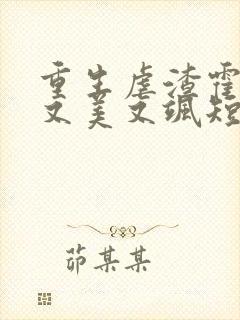 重生虐渣霍
又美又飒短
茆某某